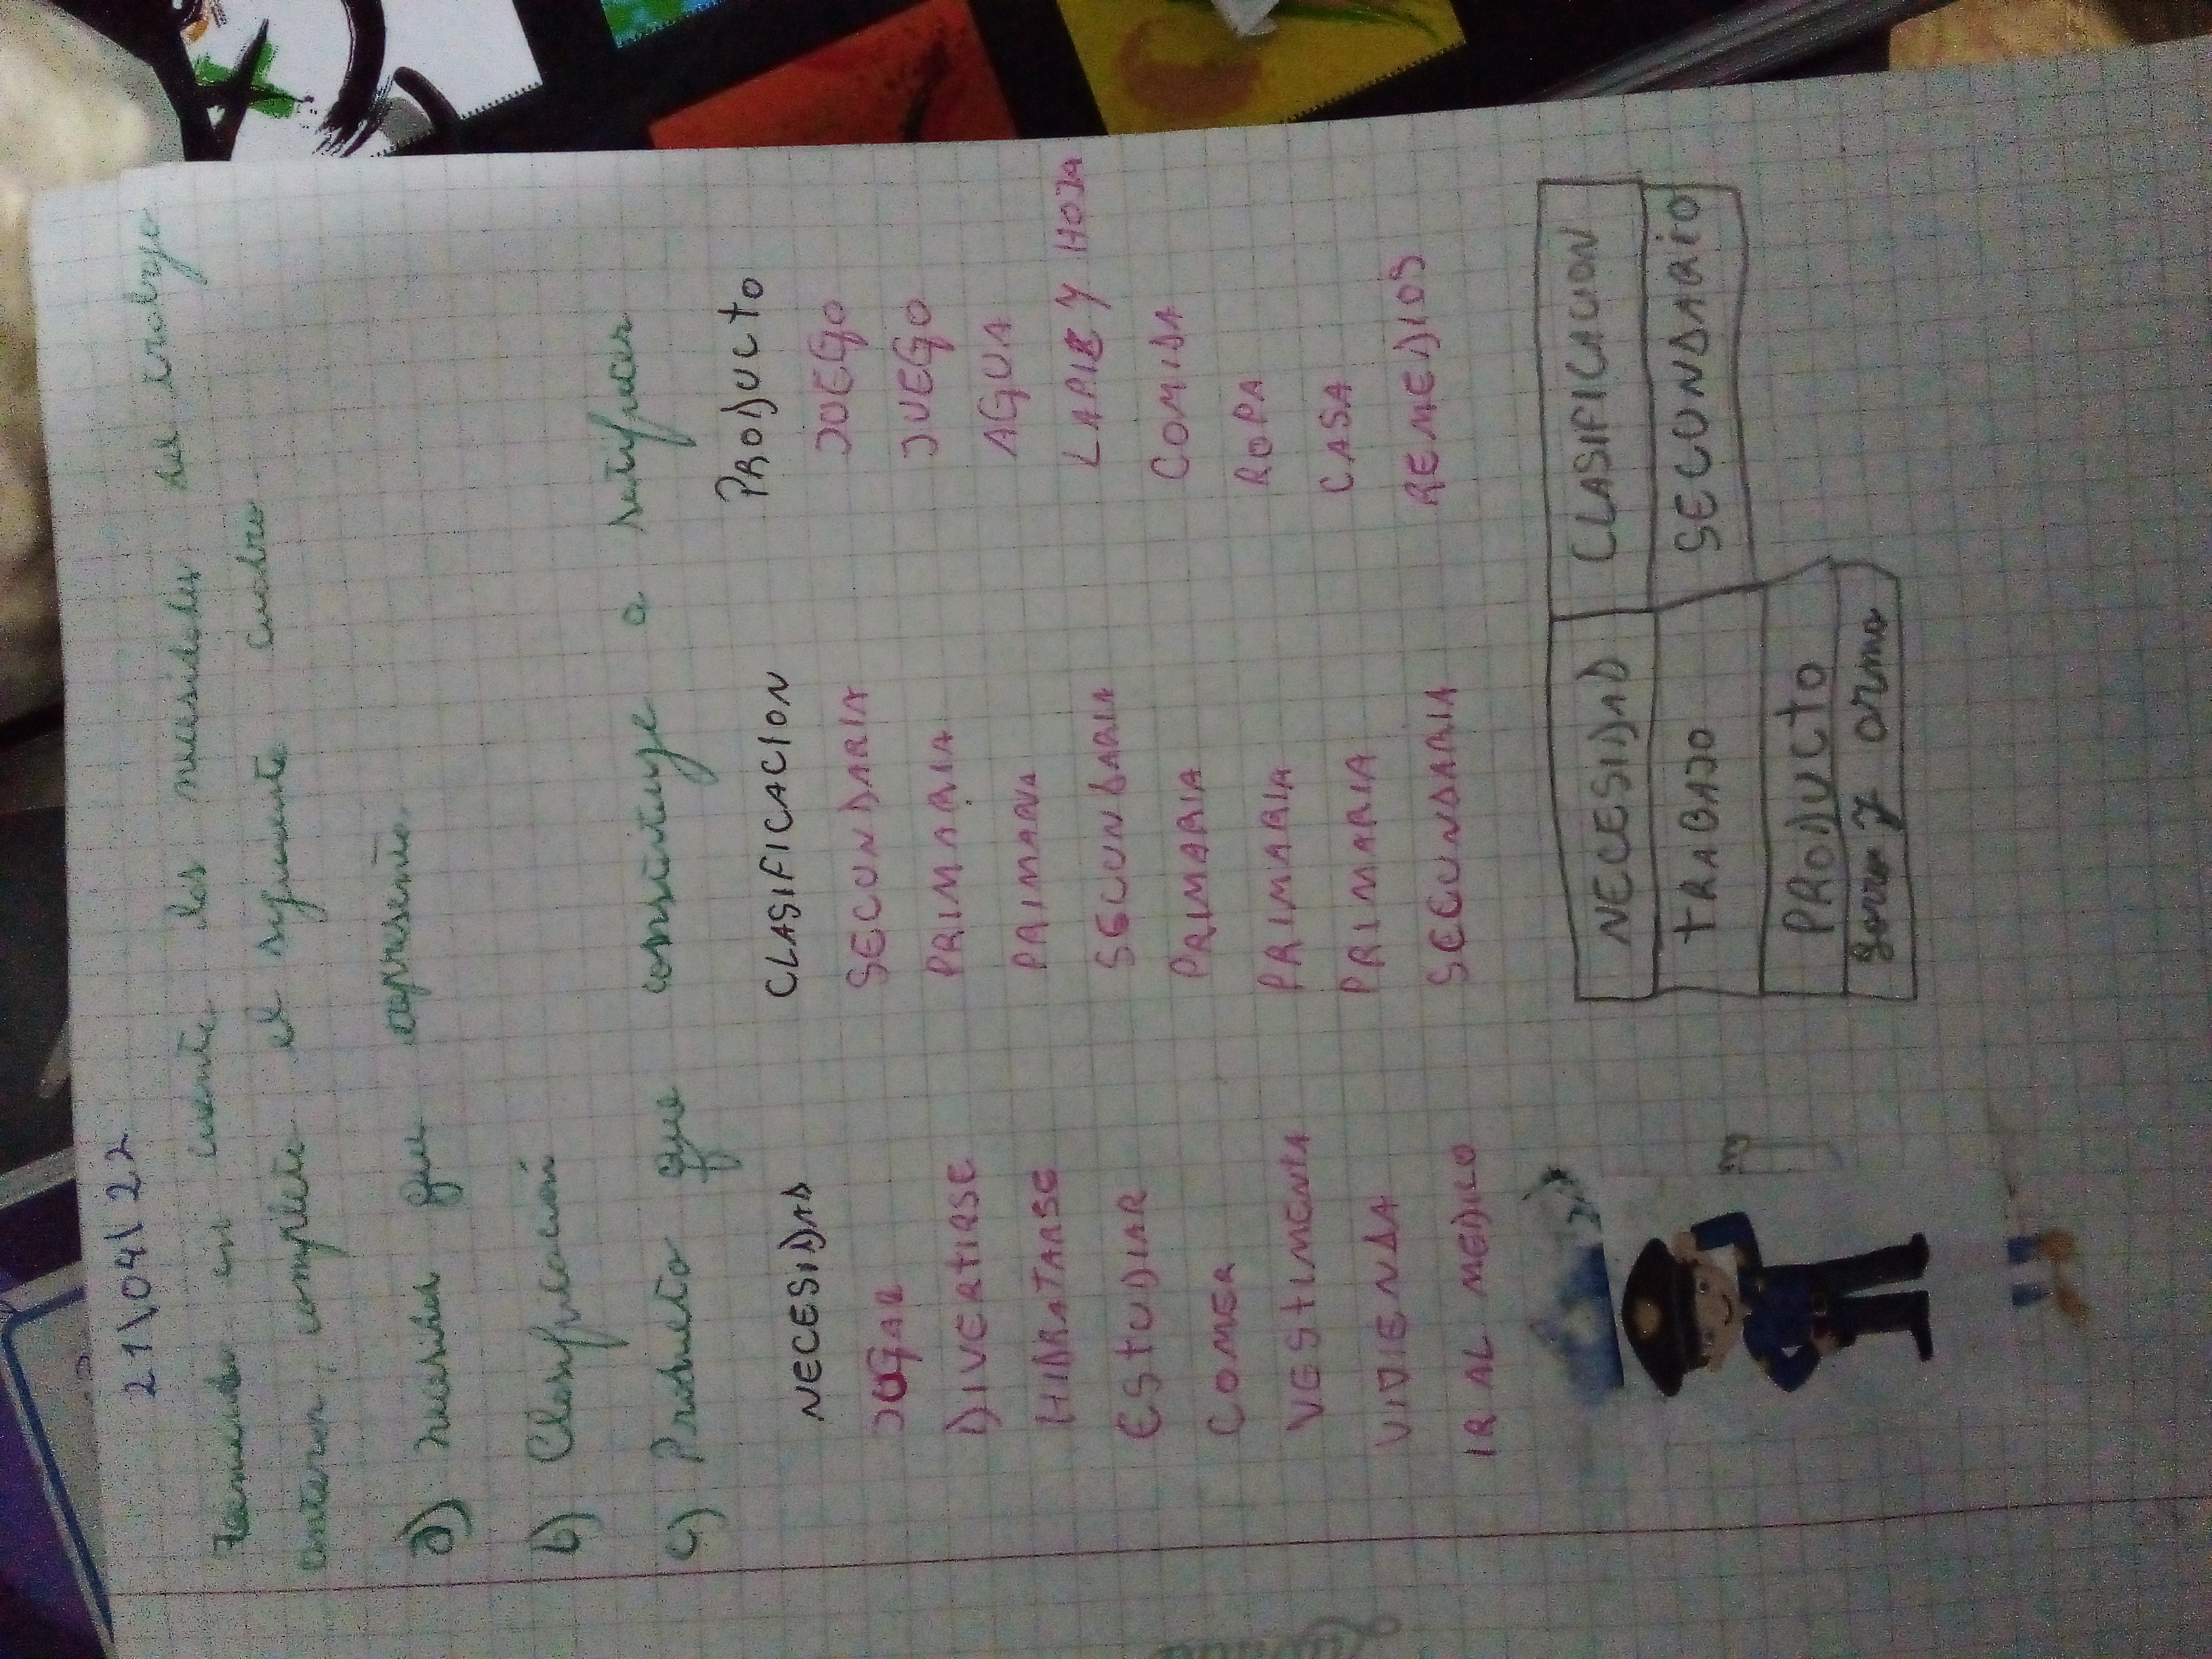 21\04\22
Teniendo en cuenta las necesidades del trabajo
anterior, completa el siguiente cuadro.
a) necesidad que representa.
b) Clasificación
c) Producto que constituye a satisfacer
NECESIDAD CLASIFICACION PRODUCTO
JUGAR SECUNDARIA JUEGO
DIVERTIRSE PRIMARIA JUEGO
HIDRATARSE PRIMARIA AGUA
ESTUDIAR SECUNDARIA LAPIZ Y HOJA
COMER PRIMARIA COMIDA
VESTIMENTA PRIMARIA ROPA
VIVIENDA PRIMARIA CASA
IR AL MEDICO SECUNDARIA REMEDIOS
NECESIDAD CLASIFICACION
TRABAJO SECUNDARIO
PRODUCTO
Gorra y arma